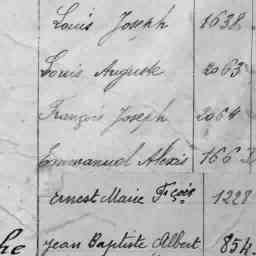 Louis Joseph 1638
Louis Auguste 2063
François Joseph 2064
Emmanuel Alexis 1663
Ernest Marie Fçois 1228
he Jean Baptiste Albert 854.